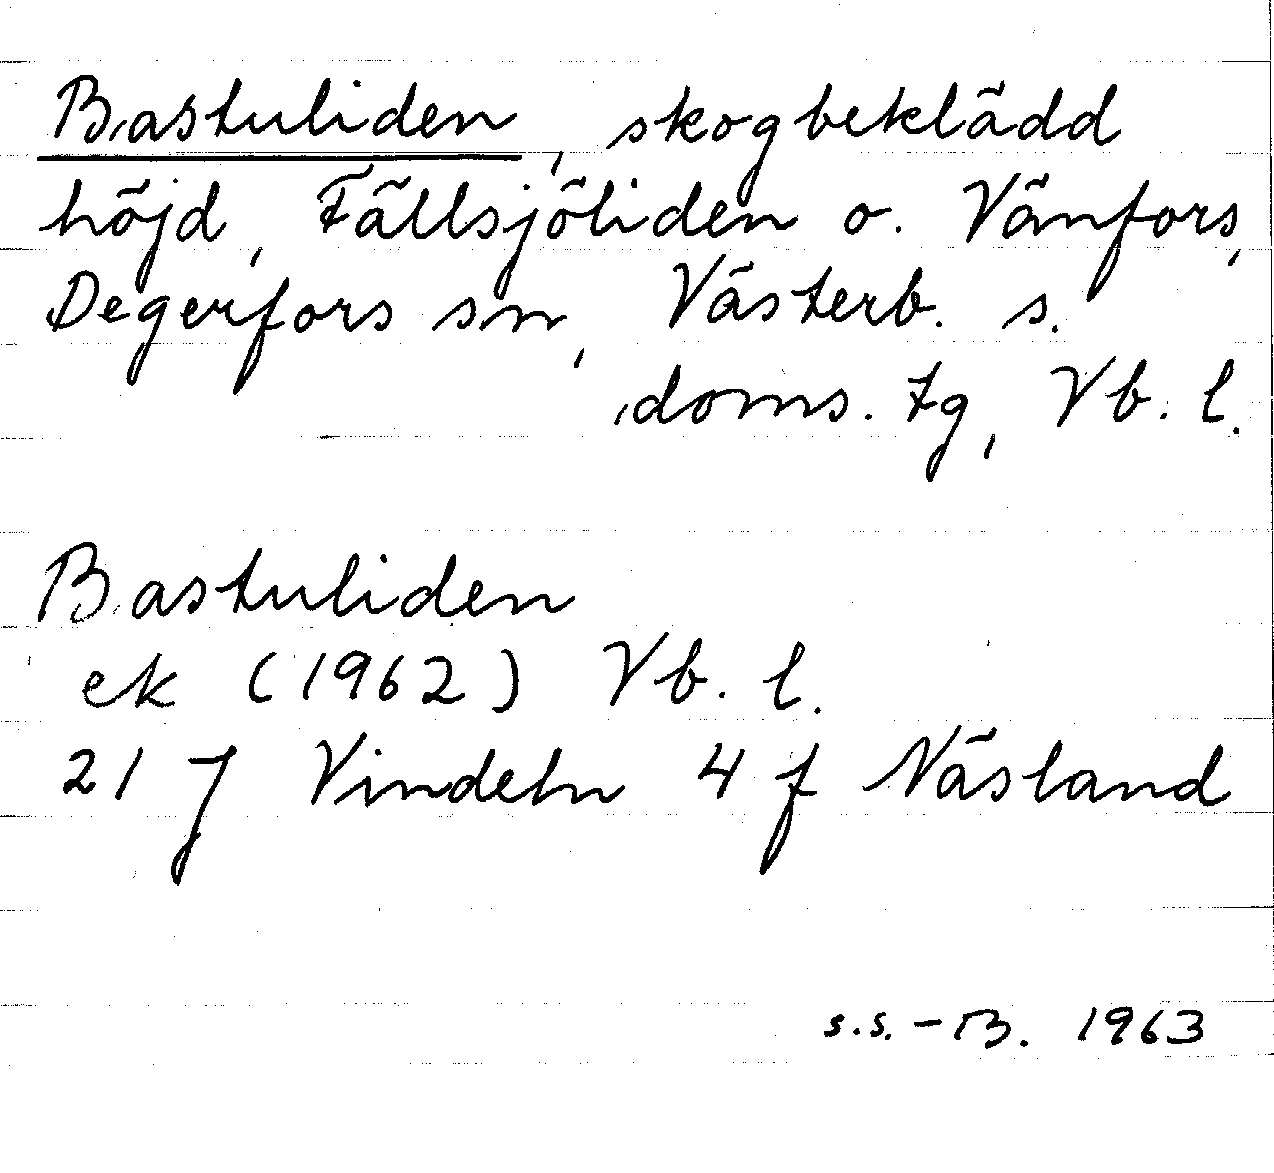 Bastuliden, skogbeklädd
höjd, Fällsjöliden o. Vänfors,
Degerfors sn, Västerb. s.
doms. tg, Vb. l.
Bastuliden
ek (1962) Vb. l.
21 J Vindeln 4 f Näsland
s.s. - B. 1963